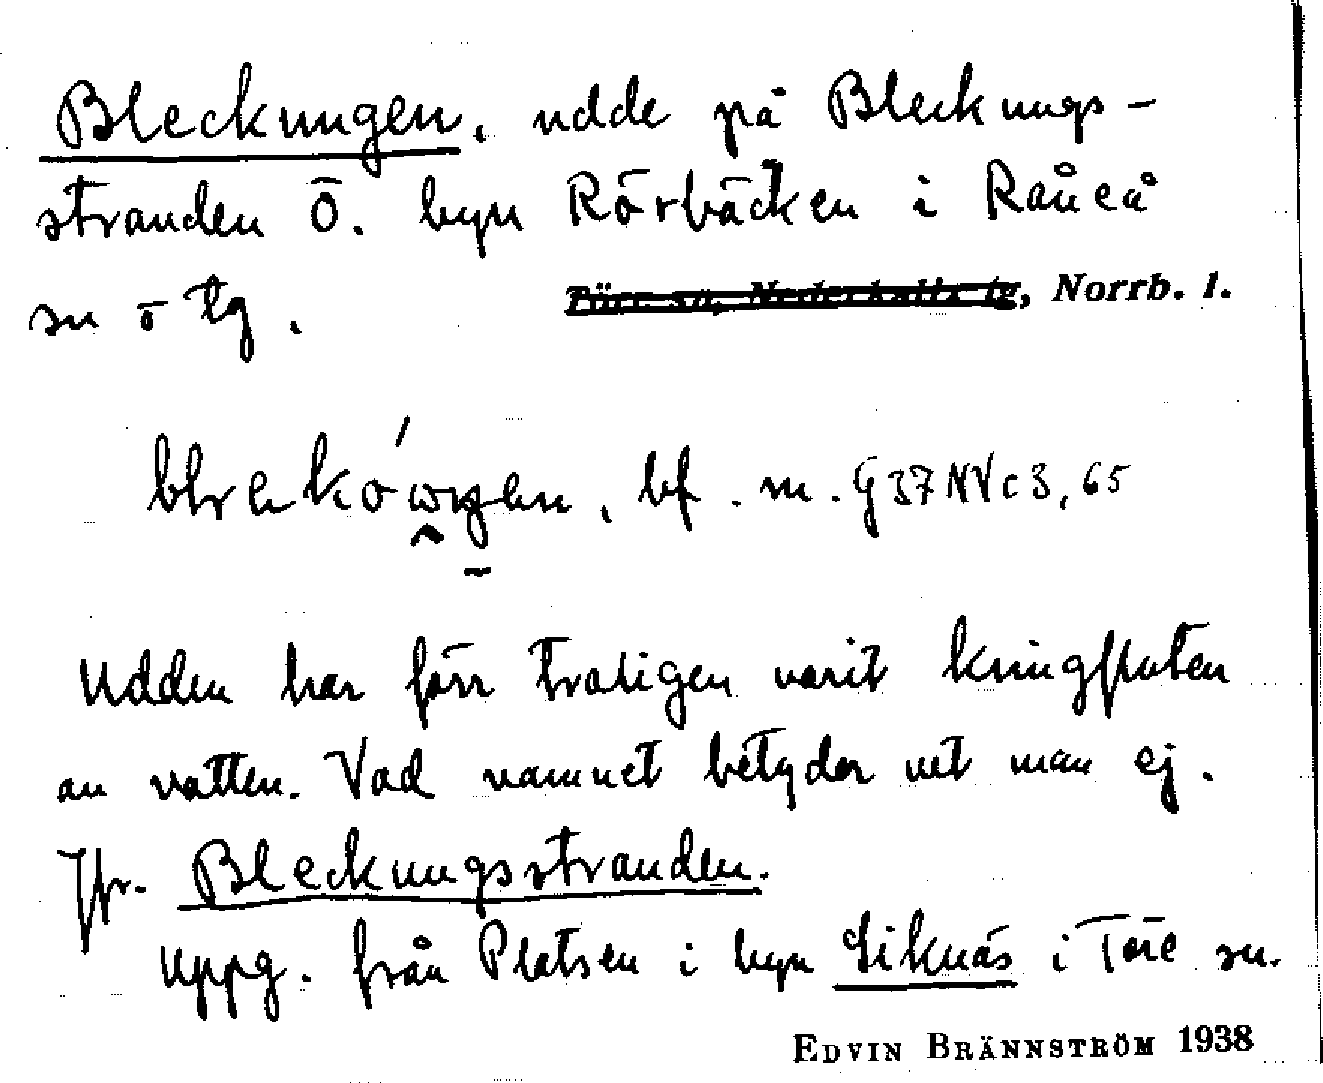 Bleckungen, udde på Bleckungs-
stranden Ö. byn Rörbäcken i Råneå
sn o tg. Töre sn, Nederkalix tg, Norrb. l.
bf. m. G 37 NV c 3, 65
Udden har förr troligen varit kringfluten
av vatten. Vad namnet betyder vet man ej.
Jfr. Bleckungsstranden.
Uppg. från Platsen i byn Siknäs i Töre sn.
EDVIN BRÄNNSTRÖM 1938